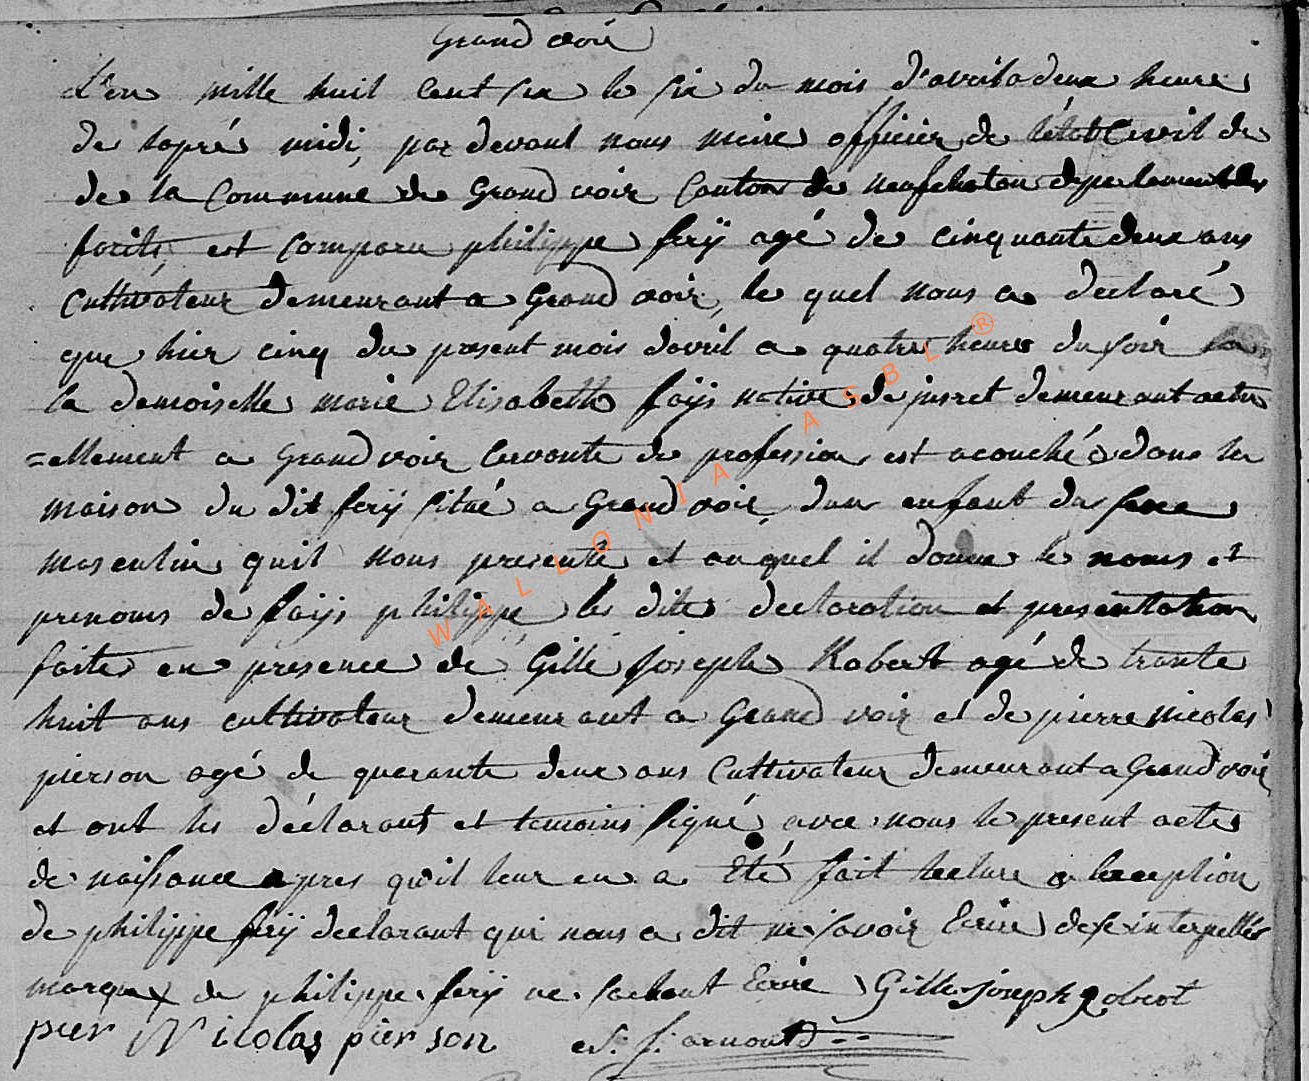 Grand voir
L'en mille huil cent six le six du mois d'avril a deux heures
de laprés midi, par devant nous maire officier de létat Civil de
de la Commune de Grand voir Canton de neufchatau departement des
forits, est comparu philippe ferÿ agé de cinquante deux ans
Cultivateur demeurant a Grand voir, le quel nous a declaré
que hier cinq du present mois davril a quatre heures du soir
la demoiselle marie Elisabeth faÿs native de jusret demeurant actu
=ellement a Grand voir Servante de profession est acouché dans la
maison du dit ferÿ situé a Grand voir, dun enfant du sexe
masculin quil nous presenté et auquel il donne le noms et
prenoms de faÿs philippe, les dites declaration et presentation
faites en presence de Gille Joseph Robert agé de trante
huit ans cultivateur demeurant a Grand voir et de pierre nicolas
pierson agé de querante deux ans Cultivateur demeurant a Grand voir
et ont les déclarant et temoins signé avec nous le present acte
de naissance apres qu'il leur en a Eté fait lecture a lexception
de philippe ferÿ declarant qui nous a dit ne savoir Ecrire de ce interpellés
marque x de philippe ferÿ ne sachant Ecrire Gille Joseph robert
pier Nicolas pierson J. f. arnould
WALLONIA ASBL ®